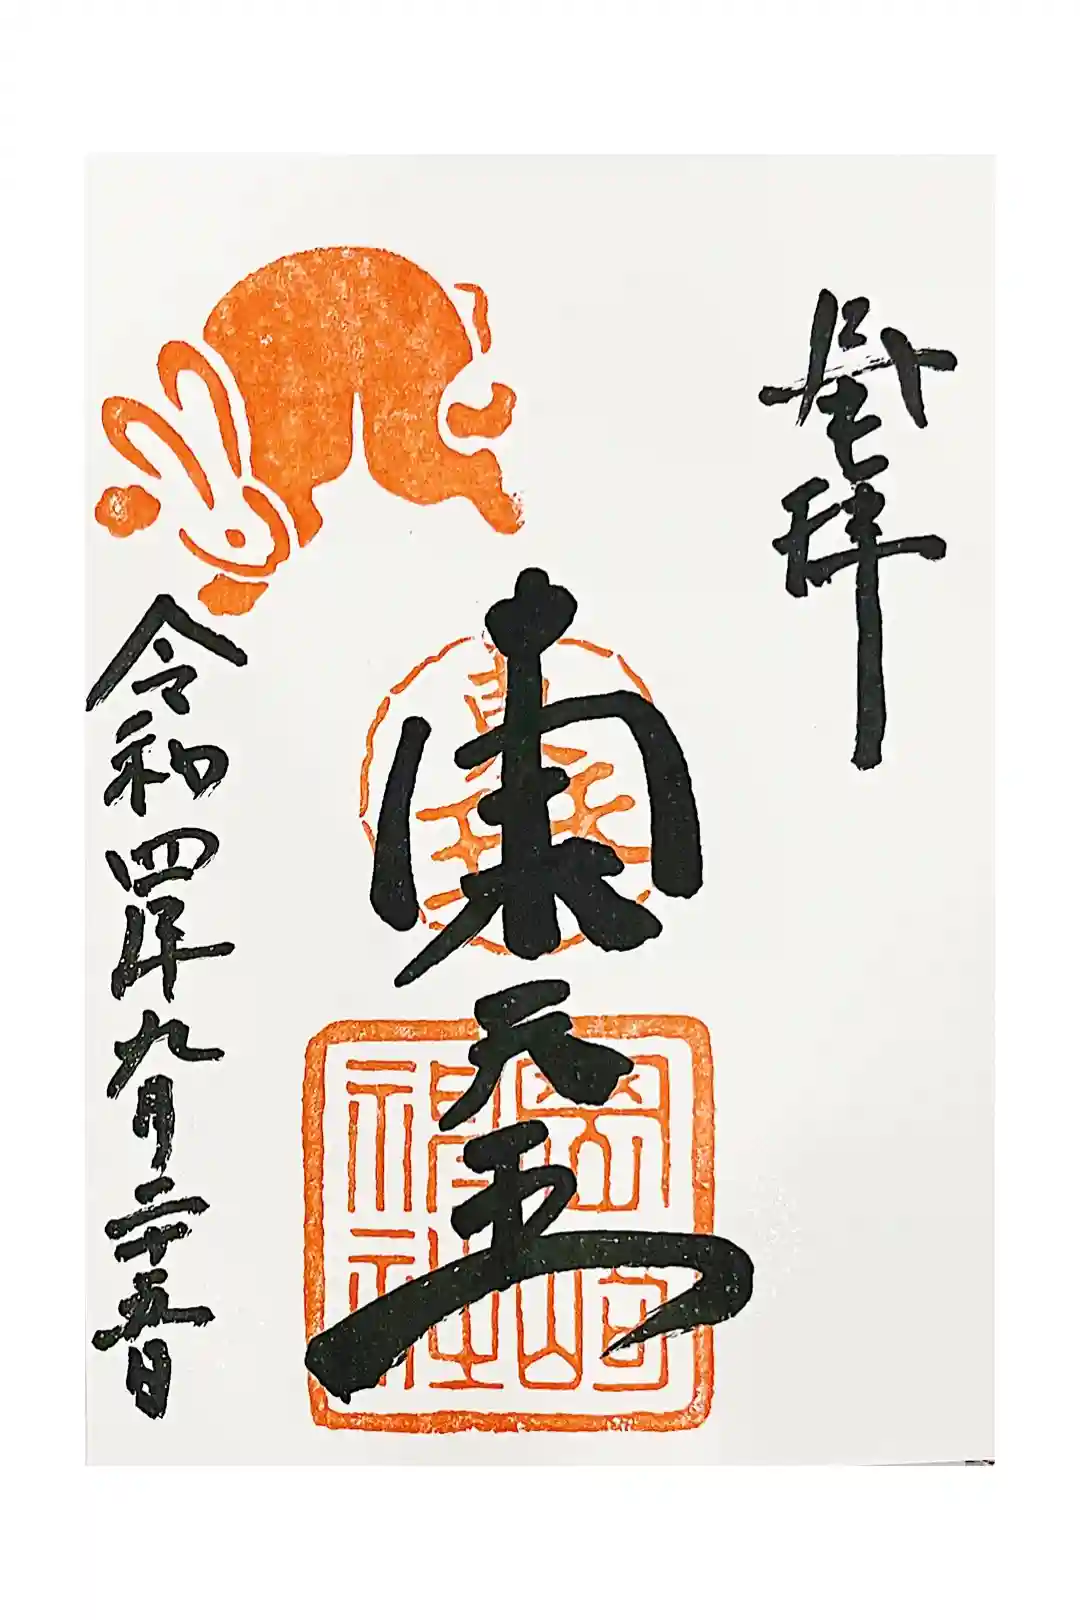 拝
東天王
令和四年九月二十五日
岡崎
神社